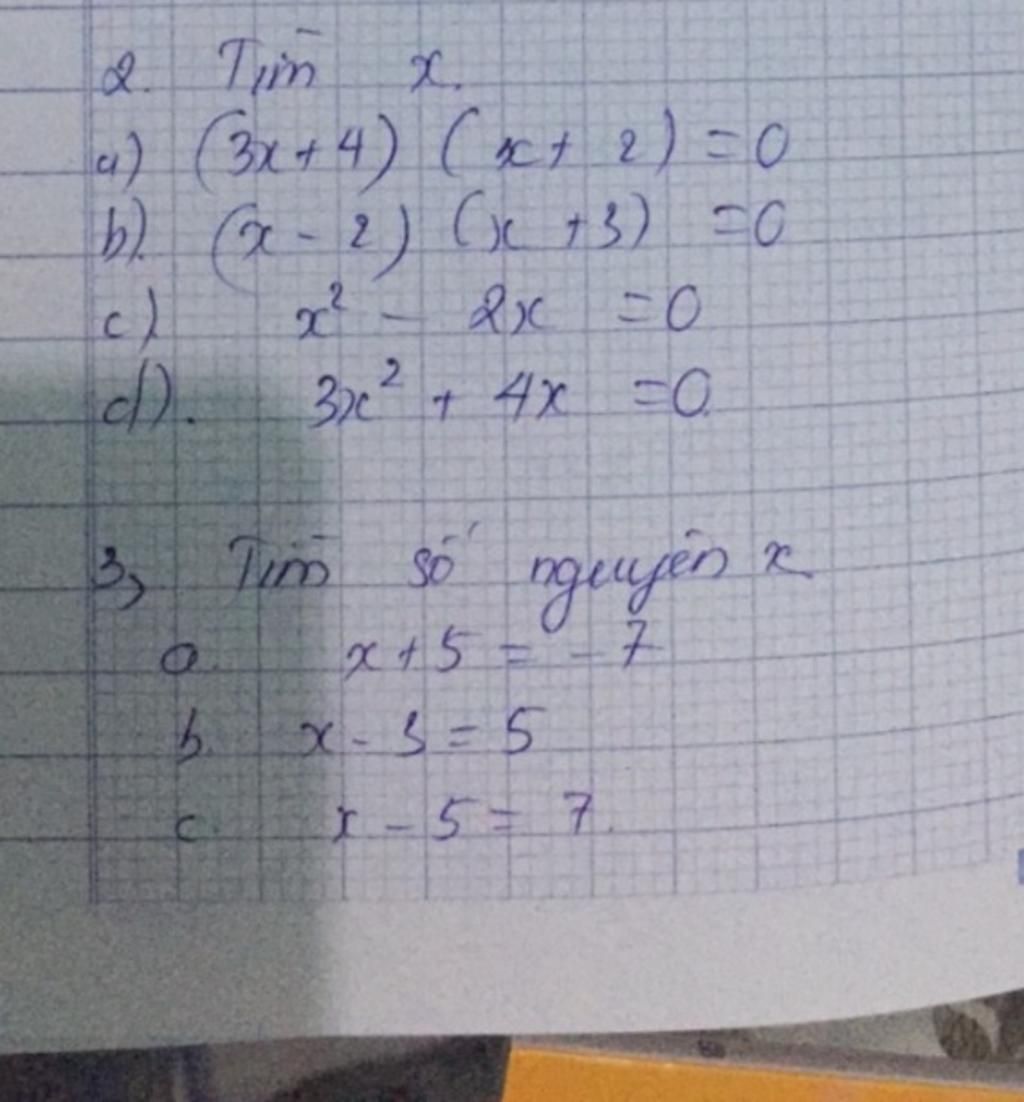 2. Tìm x.
a) (3x+4) (x+ 2) =0
b). (x-2) (x +3) =0
c) x² - 2x =0
d). 3x² + 4x =0.
3, Tìm số nguyên x
a. x+5 = -7
b. x-3=5
c. x-5= 7.